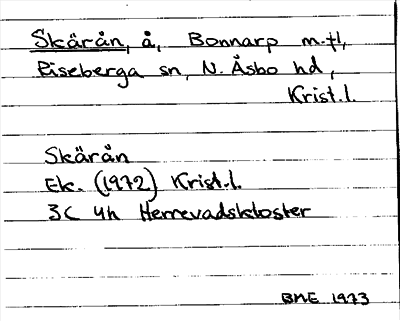 Skärån, å, Bonnarp m.fl,
Riseberga sn, N. Åsbo hd,
Krist.l.
Skärån
Ek. (1972) Krist.l.
3C 4h Herrevadskloster
BME 1973